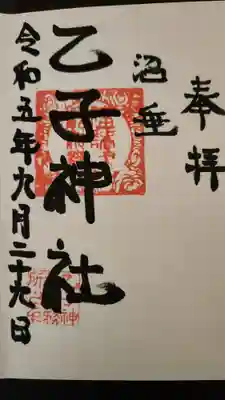 奉拝
沼垂
乙子神社
令和五年九月二十九日